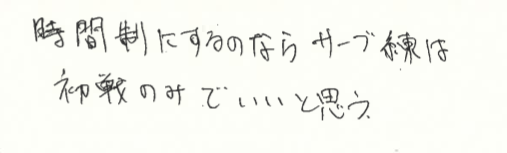 時間制にするのなら サーブ練は
初戦のみでいいと思う。